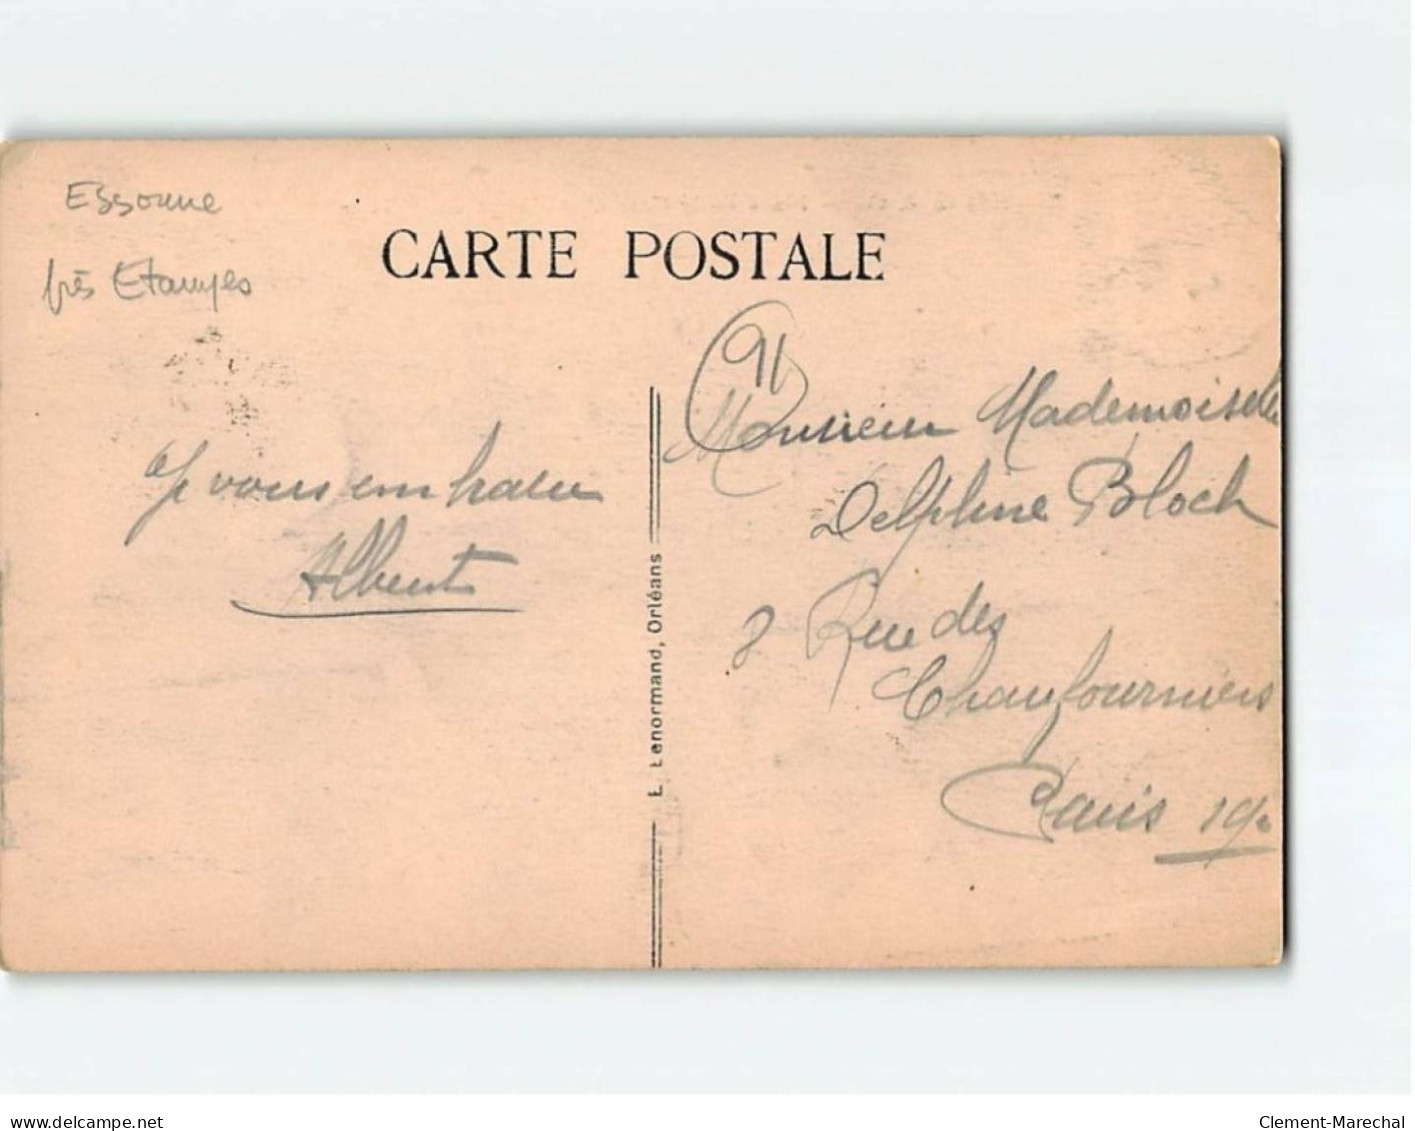 Essonne
près Etampes
CARTE POSTALE
91
Je vous embrasse
Albert
L. Lenormand, Orléans
Monsieur Mademoiselle
Delphine Bloch
8 Rue des
Chaufourniers
Paris 19e
www.delcampe.net
Clement-Marechal